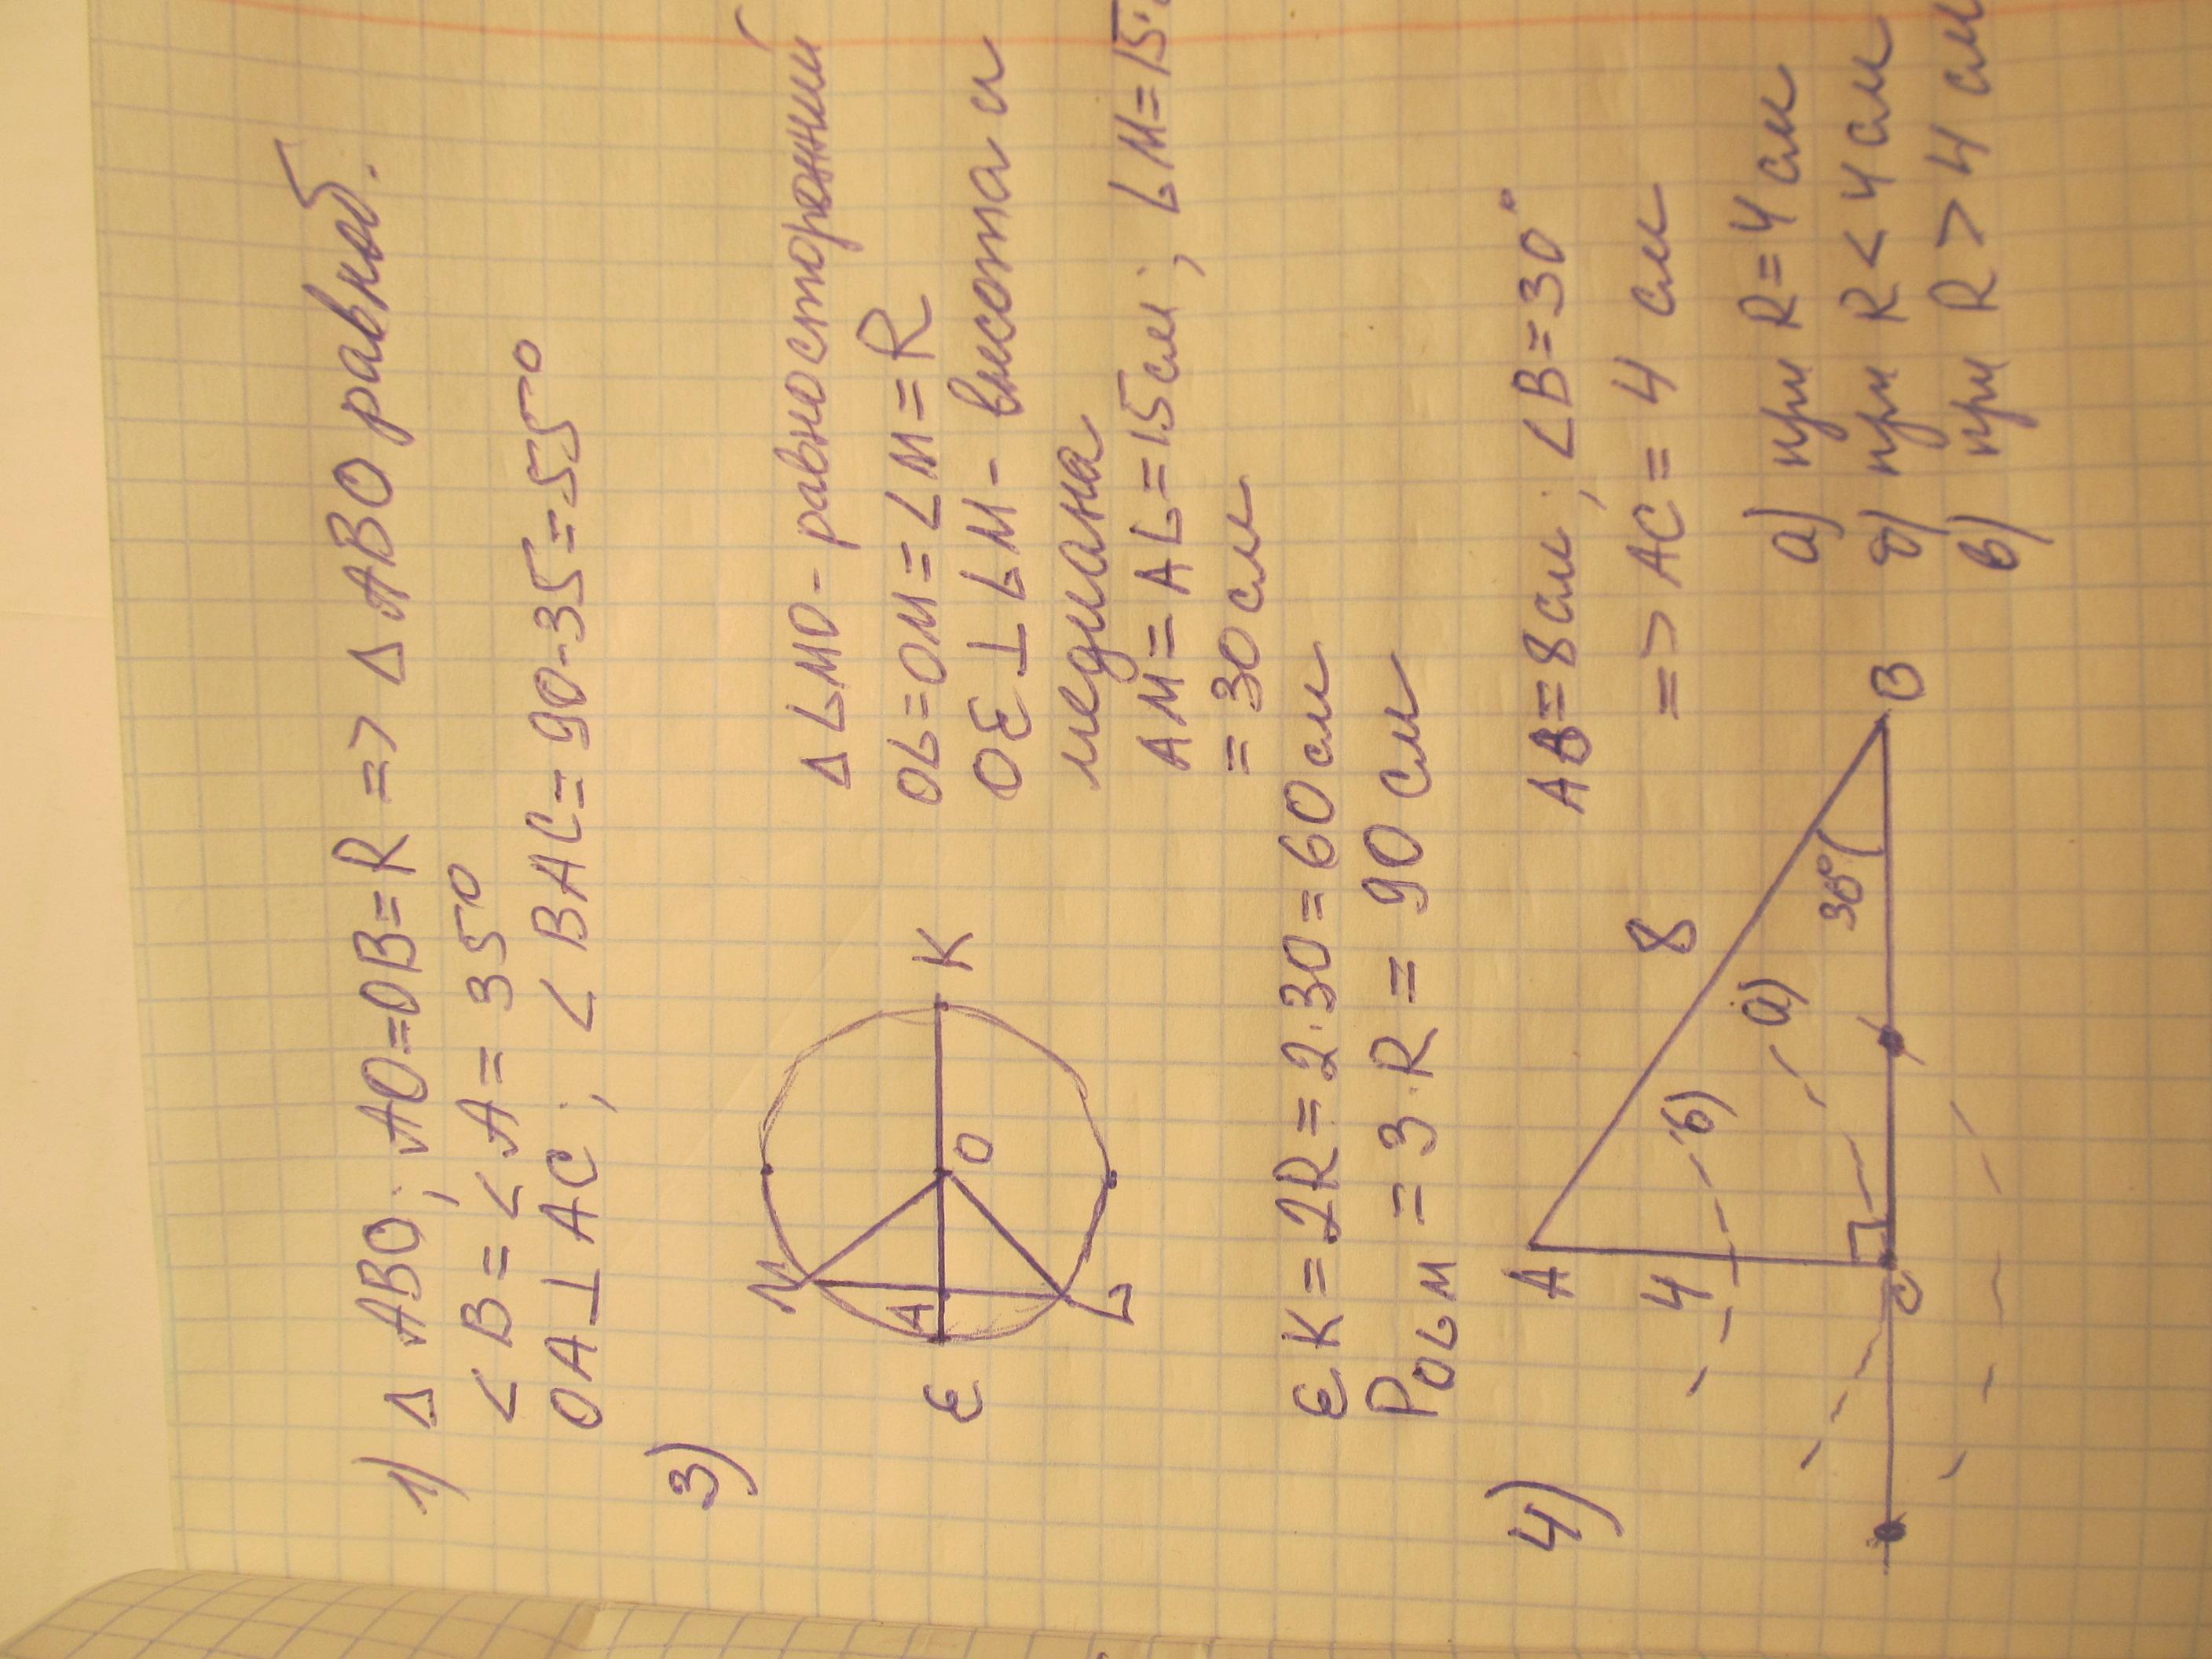 1) Δ ABO; AO=OB=R => Δ ABO равноб.
<B=<A=35°
OA⊥AC; <BAC=90-35=55°
3)
M
A
O
E
K
L
ΔLMO-равносторонний
OL=OM=LM=R
OE⊥LM-высота и
медиана
AM=AL=15см; LM=15·
=30см
EK=2R=2·30=60см
P OLM =3·R=90см
4)
A
8
4
б)
a)
30°
C
B
AB=8см; <B=30°
=>AC=4 см
a) при R=4см
б) при R<4см
в) при R>4см